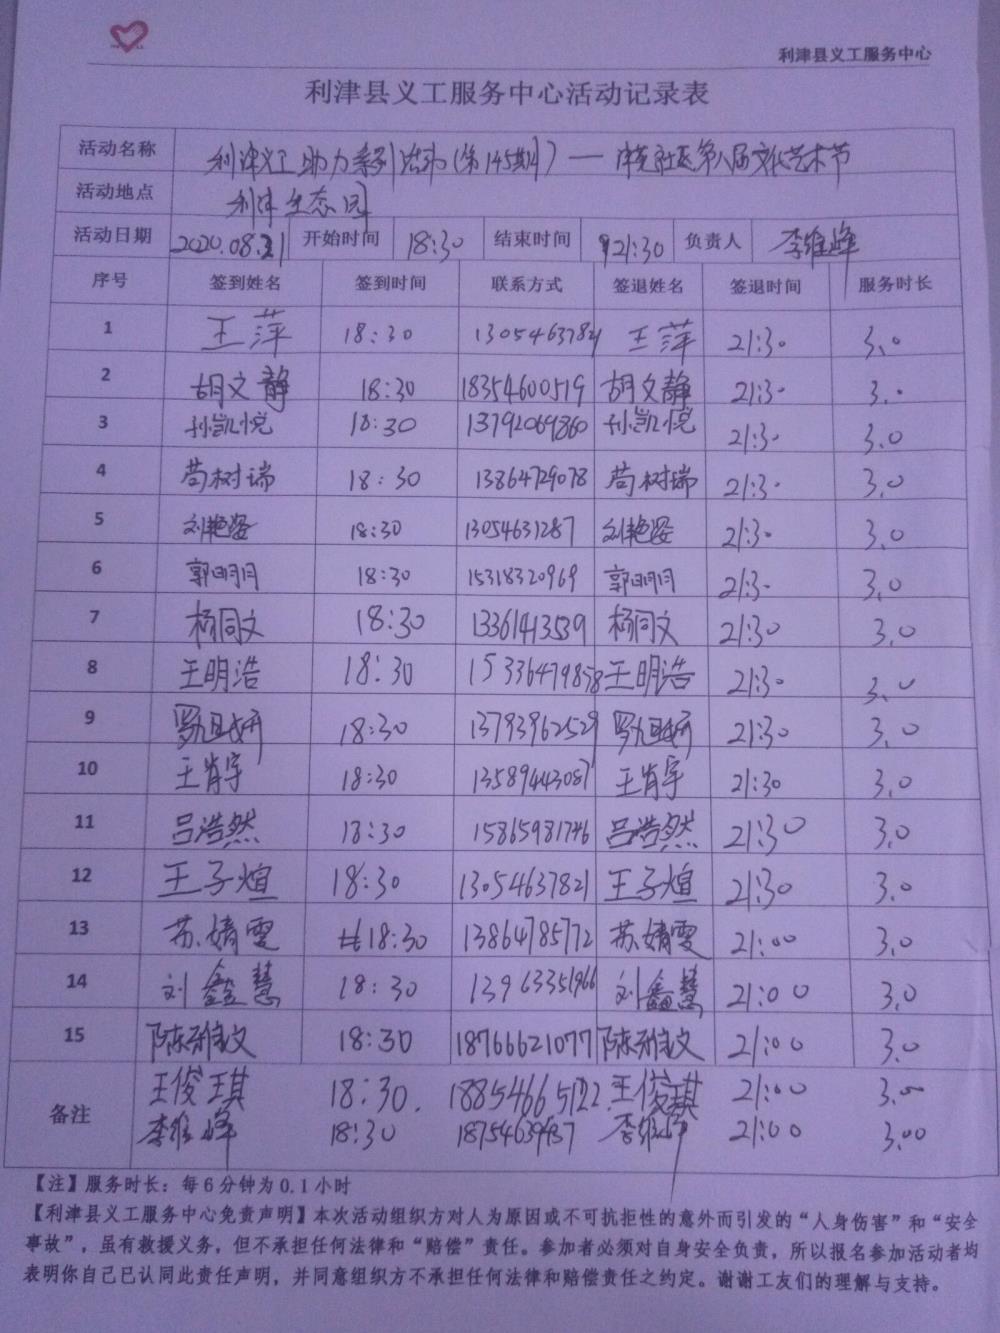 利津县义工服务中心
利津县义工服务中心活动记录表
活动名称 利津义工助力系列活动(第145期)——津苑社区第八届文化艺术节
活动地点 利津生态园
活动日期 2020.08.21 开始时间 18:30 结束时间 21:30 负责人 李维峰
序号 签到姓名 签到时间 联系方式 签退姓名 签退时间 服务时长
1 王萍 18:30 13054637821 王萍 21:30 3.0
2 胡文静 18:30 18354600519 胡文静 21:30 3.0
3 孙凯悦 18:30 13792069860 孙凯悦 21:30 3.0
4 苟树瑞 18:30 13864729078 苟树瑞 21:30 3.0
5 刘艳姿 18:30 13054631287 刘艳姿 21:30 3.0
6 郭明月 18:30 15318320969 郭明月 21:30 3.0
7 杨同文 18:30 13361413539 杨同文 21:30 3.0
8 王明浩 18:30 15336479858 王明浩 21:30 3.0
9 18:30 13793962529 21:30 3.0
10 王肖宇 18:30 13589443087 王肖宇 21:30 3.0
11 吕浩然 18:30 15865981746 吕浩然 21:30 3.0
12 王子煊 18:30 13054637821 王子煊 21:30 3.0
13 苏婧雯 18:30 13864785772 苏婧雯 21:00 3.0
14 刘鑫慧 18:30 13963351966 刘鑫慧 21:00 3.0
15 18:30 18766621077 21:00 3.0
备注 王俊琪 18:30. 18854665122 王俊琪 21:00 3.00
李维峰 18:30 李维峰 21:00 3.00
【注】服务时长：每6分钟为0.1小时
【利津县义工服务中心免责声明】本次活动组织方对人为原因或不可抗拒性的意外而引发的“人身伤害”和“安全
事故”，虽有救援义务，但不承担任何法律和“赔偿”责任。参加者必须对自身安全负责，所以报名参加活动者均
表明你自己已认同此责任声明，并同意组织方不承担任何法律和赔偿责任之约定。谢谢工友们的理解与支持。